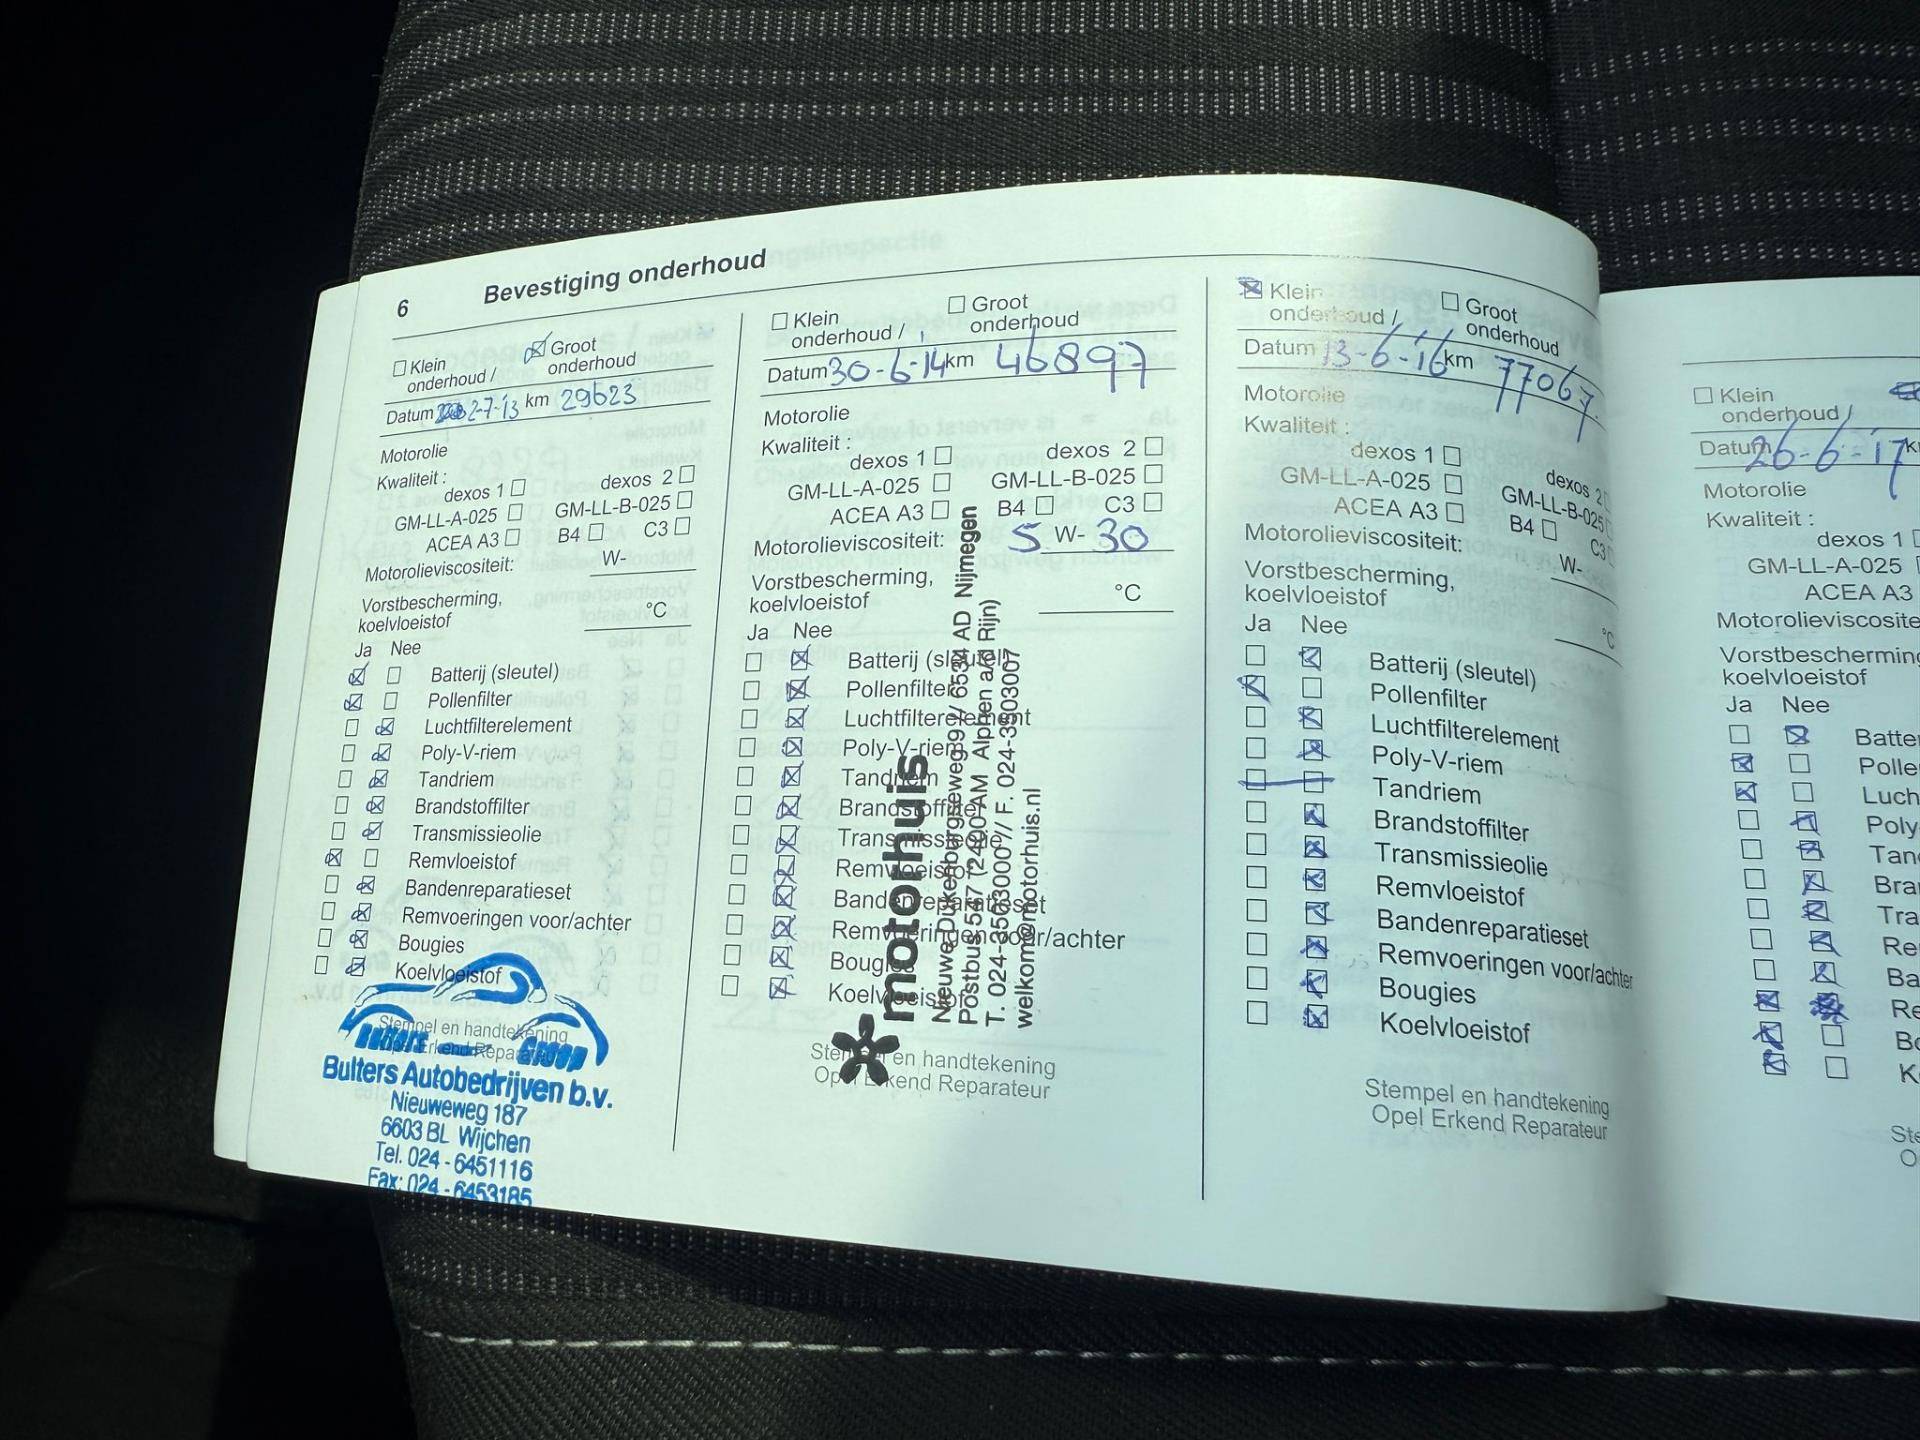 6 Bevestiging onderhoud
Klein onderhoud / Groot onderhoud
Datum 2-7-13 km 29623
Motorolie
Kwaliteit :
dexos 1 dexos 2
GM-LL-A-025 GM-LL-B-025
ACEA A3 B4 C3
Motorolieviscositeit: W-
Vorstbescherming,
koelvloeistof °C
Ja Nee
Batterij (sleutel)
Pollenfilter
Luchtfilterelement
Poly-V-riem
Tandriem
Brandstoffilter
Transmissieolie
Remvloeistof
Bandenreparatieset
Remvoeringen voor/achter
Bougies
Koelvloeistof
Stempel en handtekening
Opel Erkend Reparateur
Bulters Autobedrijven b.v.
Nieuweweg 187
6603 BL Wijchen
Tel. 024 - 6451116
Fax: 024 - 6453185
Klein onderhoud / Groot onderhoud
Datum 30-6-14 km 46897
Motorolie
Kwaliteit :
dexos 1 dexos 2
GM-LL-A-025 GM-LL-B-025
ACEA A3 B4 C3
Motorolieviscositeit: 5 W- 30
Vorstbescherming,
koelvloeistof °C
Ja Nee
Batterij (sleutel)
Pollenfilter
Luchtfilterelement
Poly-V-riem
Tandriem
Brandstoffilter
Transmissieolie
Remvloeistof
Bandenreparatieset
Remvoeringen voor/achter
Bougies
Koelvloeistof
Stempel en handtekening
Opel Erkend Reparateur
motorhuis
Nieuwe Dukenburgseweg 9 // 6534 AD Nijmegen
Postbus 567 (2400 AM Alphen a/d Rijn)
T. 024-3503000 // F. 024-3503007
welkom@motorhuis.nl
Klein onderhoud / Groot onderhoud
Datum 13-6-'16 km 77067
Motorolie
Kwaliteit :
dexos 1 dexos 2
GM-LL-A-025 GM-LL-B-025
ACEA A3 B4 C3
Motorolieviscositeit: W-
Vorstbescherming,
koelvloeistof °C
Ja Nee
Batterij (sleutel)
Pollenfilter
Luchtfilterelement
Poly-V-riem
Tandriem
Brandstoffilter
Transmissieolie
Remvloeistof
Bandenreparatieset
Remvoeringen voor/achter
Bougies
Koelvloeistof
Stempel en handtekening
Opel Erkend Reparateur
Klein
onderhoud /
Datum 26-6-'17 k
Motorolie
Kwaliteit :
dexos 1
GM-LL-A-025
ACEA A3
Motorolieviscosite
Vorstbescherming
koelvloeistof
Ja Nee
Batte
Polle
Luch
Poly
Tan
Bra
Tra
Re
Ba
Re
Bo
K
Ste
O